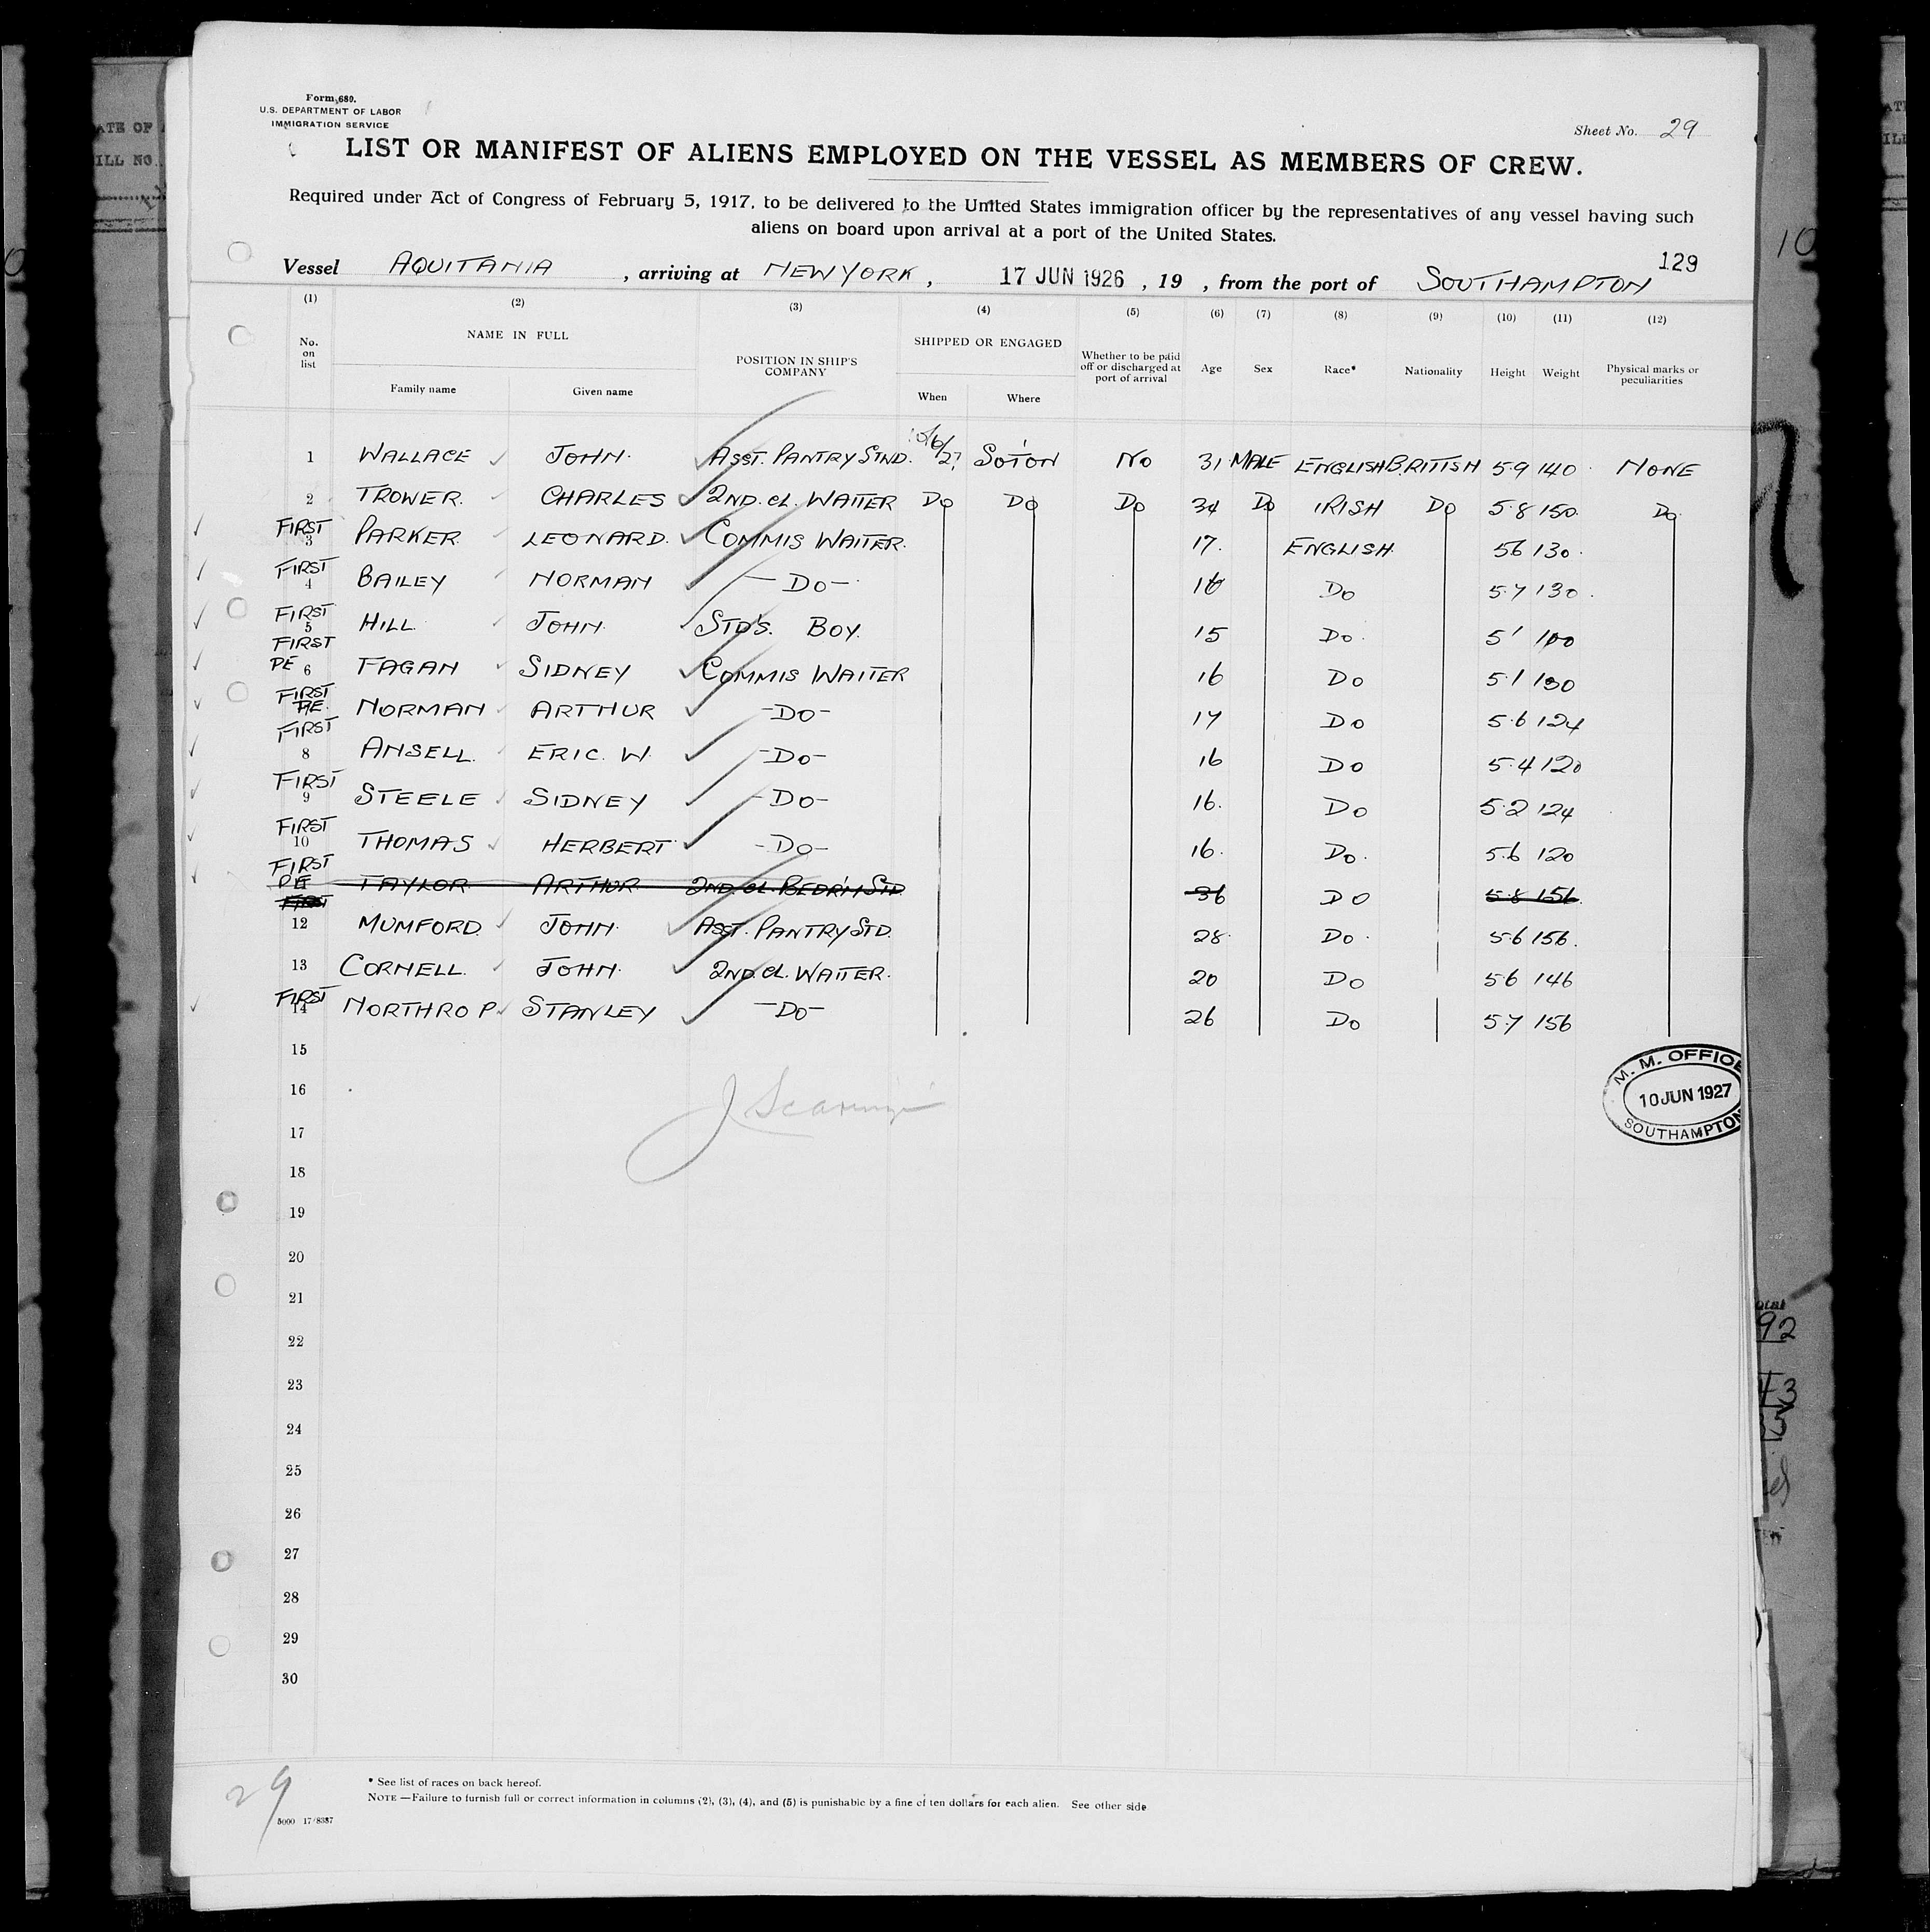 Form 680.
U.S. DEPARTMENT OF LABOR
IMMIGRATION SERVICE
Sheet No. 29
LIST OR MANIFEST OF ALIENS EMPLOYED ON THE VESSEL AS MEMBERS OF CREW.
Required under Act of Congress of February 5, 1917, to be delivered to the United States immigration officer by the representatives of any vessel having such
aliens on board upon arrival at a port of the United States.
129
Vessel AQUITANIA, arriving at NEW YORK, 17 JUN 1926, 19 , from the port of SOUTHAMPTON
(1) (2) (3) (4) (5) (6) (7) (8) (9) (10) (11) (12)
No. on list NAME IN FULL Family name Given name POSITION IN SHIP'S COMPANY SHIPPED OR ENGAGED When Where Whether to be paid off or discharged at port of arrival Age Sex Race* Nationality Height Weight Physical marks or peculiarities
1 WALLACE JOHN. ASST. PANTRY STND. 10/6/27 SO'TON NO 31 MALE ENGLISH BRITISH 5.9 140 NONE
2 TROWER. CHARLES 2ND. CL. WAITER DO DO DO 34 DO IRISH DO 5.8 150. DO.
FIRST 3 PARKER LEONARD. COMMIS WAITER. 17. ENGLISH. 56 130.
FIRST 4 BAILEY NORMAN — DO — 16 DO 5.7 130.
FIRST 5 HILL. JOHN. STD'S. BOY. 15 DO. 5' 100
FIRST PE 6 FAGAN SIDNEY COMMIS WAITER 16 DO 5.1 100
FIRST PE. 7 NORMAN ARTHUR -DO- 17 DO 5.6 124
FIRST 8 ANSELL. ERIC. W. -DO- 16 DO 5.4 120
FIRST 9 STEELE SIDNEY -DO- 16. DO 5.2 124
FIRST 10 THOMAS HERBERT -DO- 16. DO. 5.6 120
FIRST PE TAYLOR ARTHUR 2ND. CL. BEDR'M STD 36 DO 5.8 156.
FIRST
12 MUMFORD. JOHN. ASST. PANTRY STD. 28. DO. 5.6 156.
13 CORNELL. JOHN. 2ND. CL. WAITER. 20 DO 5.6 146
FIRST 14 NORTHROP. STANLEY -DO- 26 DO 5.7 156
15
16
17
18
19
20
21
22
23
24
25
26
27
28
29
30
M. M. OFFICE
10 JUN 1927
SOUTHAMPTON
* See list of races on back hereof.
NOTE —Failure to furnish full or correct information in columns (2), (3), (4), and (5) is punishable by a fine of ten dollars for each alien. See other side
29
5000 17/8387